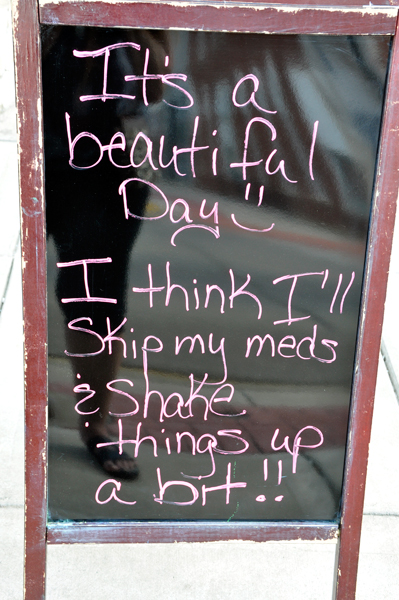 It's a
beautiful
Day
I think I'll
Skip my meds
& Shake
things up
a bit!!